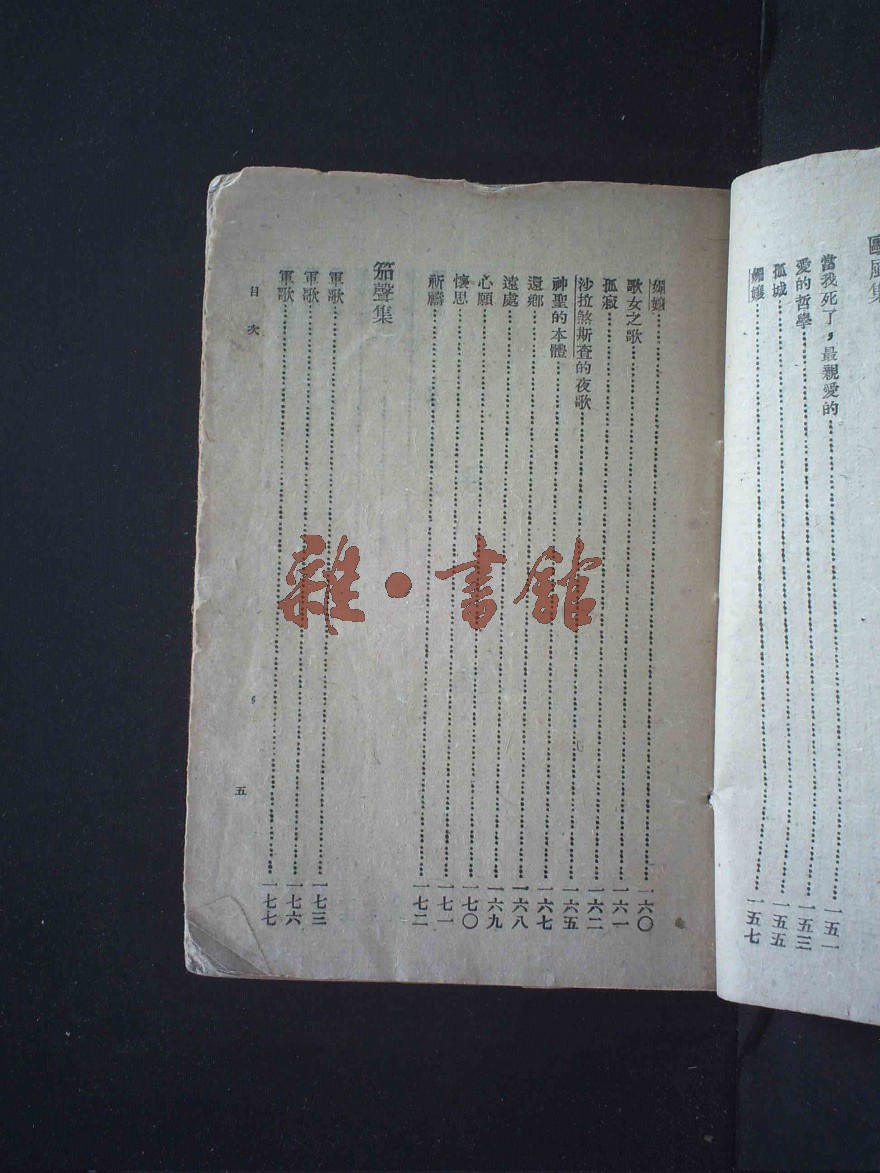 歐風集
當我死了，最親愛的……一五一
愛的哲學……一五三
孤城……一五五
孃……一五七
孃……一六〇
歌女之歌……一六一
孤寂……一六二
沙拉煞斯查的夜歌……一六五
神聖的本體……一六七
還鄉……一六八
遠處……一六九
心願……一七〇
懷思……一七一
祈禱……一七二
笳聲集
軍歌……一七三
軍歌……一七六
軍歌……一七七
目次
五
雜·書館